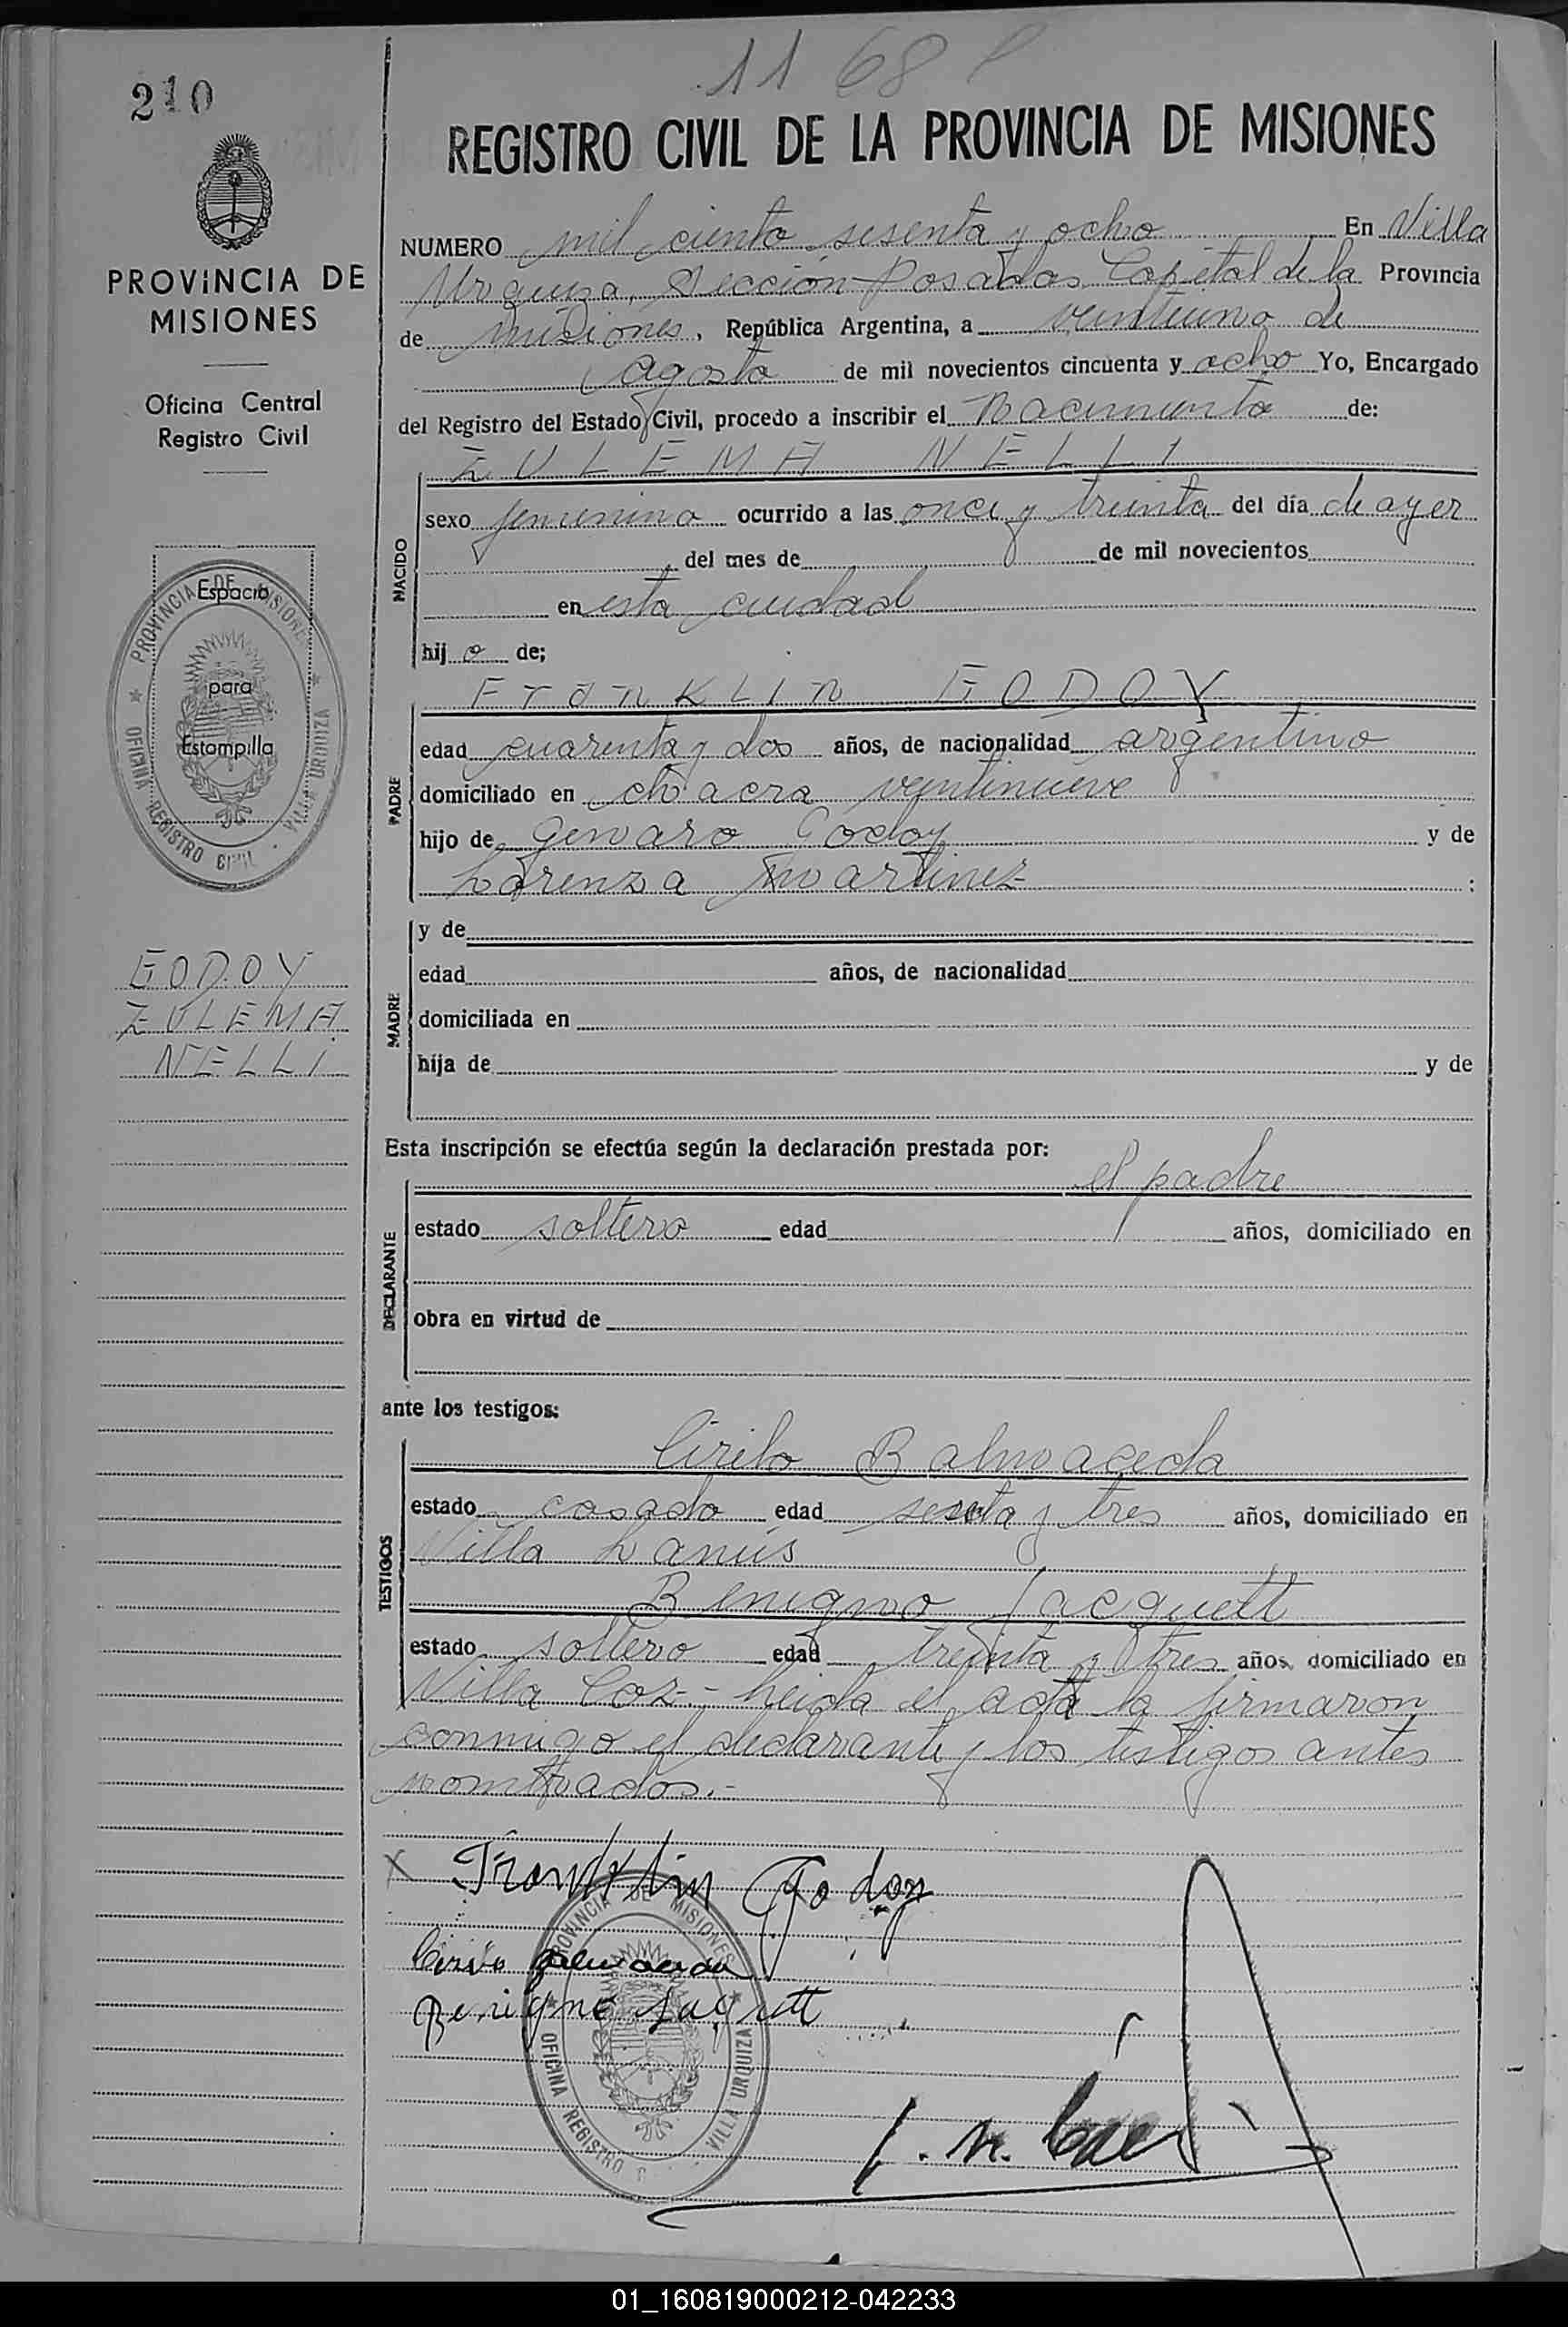 11 68
210
REGISTRO CIVIL DE LA PROVINCIA DE MISIONES
PROVINCIA DE
MISIONES
Oficina Central
Registro Civil
NUMERO mil ciento sesenta y ocho En Villa
Urquiza, Sección Posadas Capital de la Provincia
de Misiones, República Argentina, a veintiuno de
Agosto de mil novecientos cincuenta y ocho Yo, Encargado
del Registro del Estado Civil, procedo a inscribir el Nacimiento de:
ZULEMA NELLI
NACIDO
sexo femenino ocurrido a las once y treinta del día de ayer
del mes de de mil novecientos
en esta ciudad
hij o de;
Espacio
para
Estompilla
PROVINCIA DE MISIONES
OFICINA REGISTRO CIVIL VILLA URQUIZA
Franklin GODOY
PADRE
edad cuarenta y dos años, de nacionalidad argentino
domiciliado en chacra veintinueve
hijo de Genaro Godoy y de
Lorenza Martinez :
GODOY
ZULEMA
NELLI
MADRE
y de
edad años, de nacionalidad
domiciliada en
hija de y de
Esta inscripción se efectúa según la declaración prestada por:
el padre
DECLARANTE
estado soltero edad años, domiciliado en
obra en virtud de
ante los testigos:
Cirilo Balmaceda
TESTIGOS
estado casado edad sesenta y tres años, domiciliado en
Villa Lanús
Benigno Jacquett
estado soltero edad treinta y tres años, domiciliado en
Villa Coz.- Leida el acta la firmaron
conmigo el declarante y los testigos antes
nombrados.-
X Franklin Godoy
PROVINCIA DE MISIONES
OFICINA REGISTRO VILLA URQUIZA
01_160819000212-042233